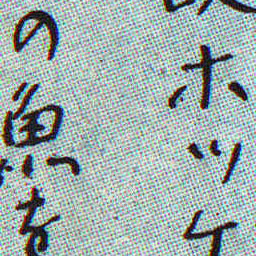 ホッケ
の魚を